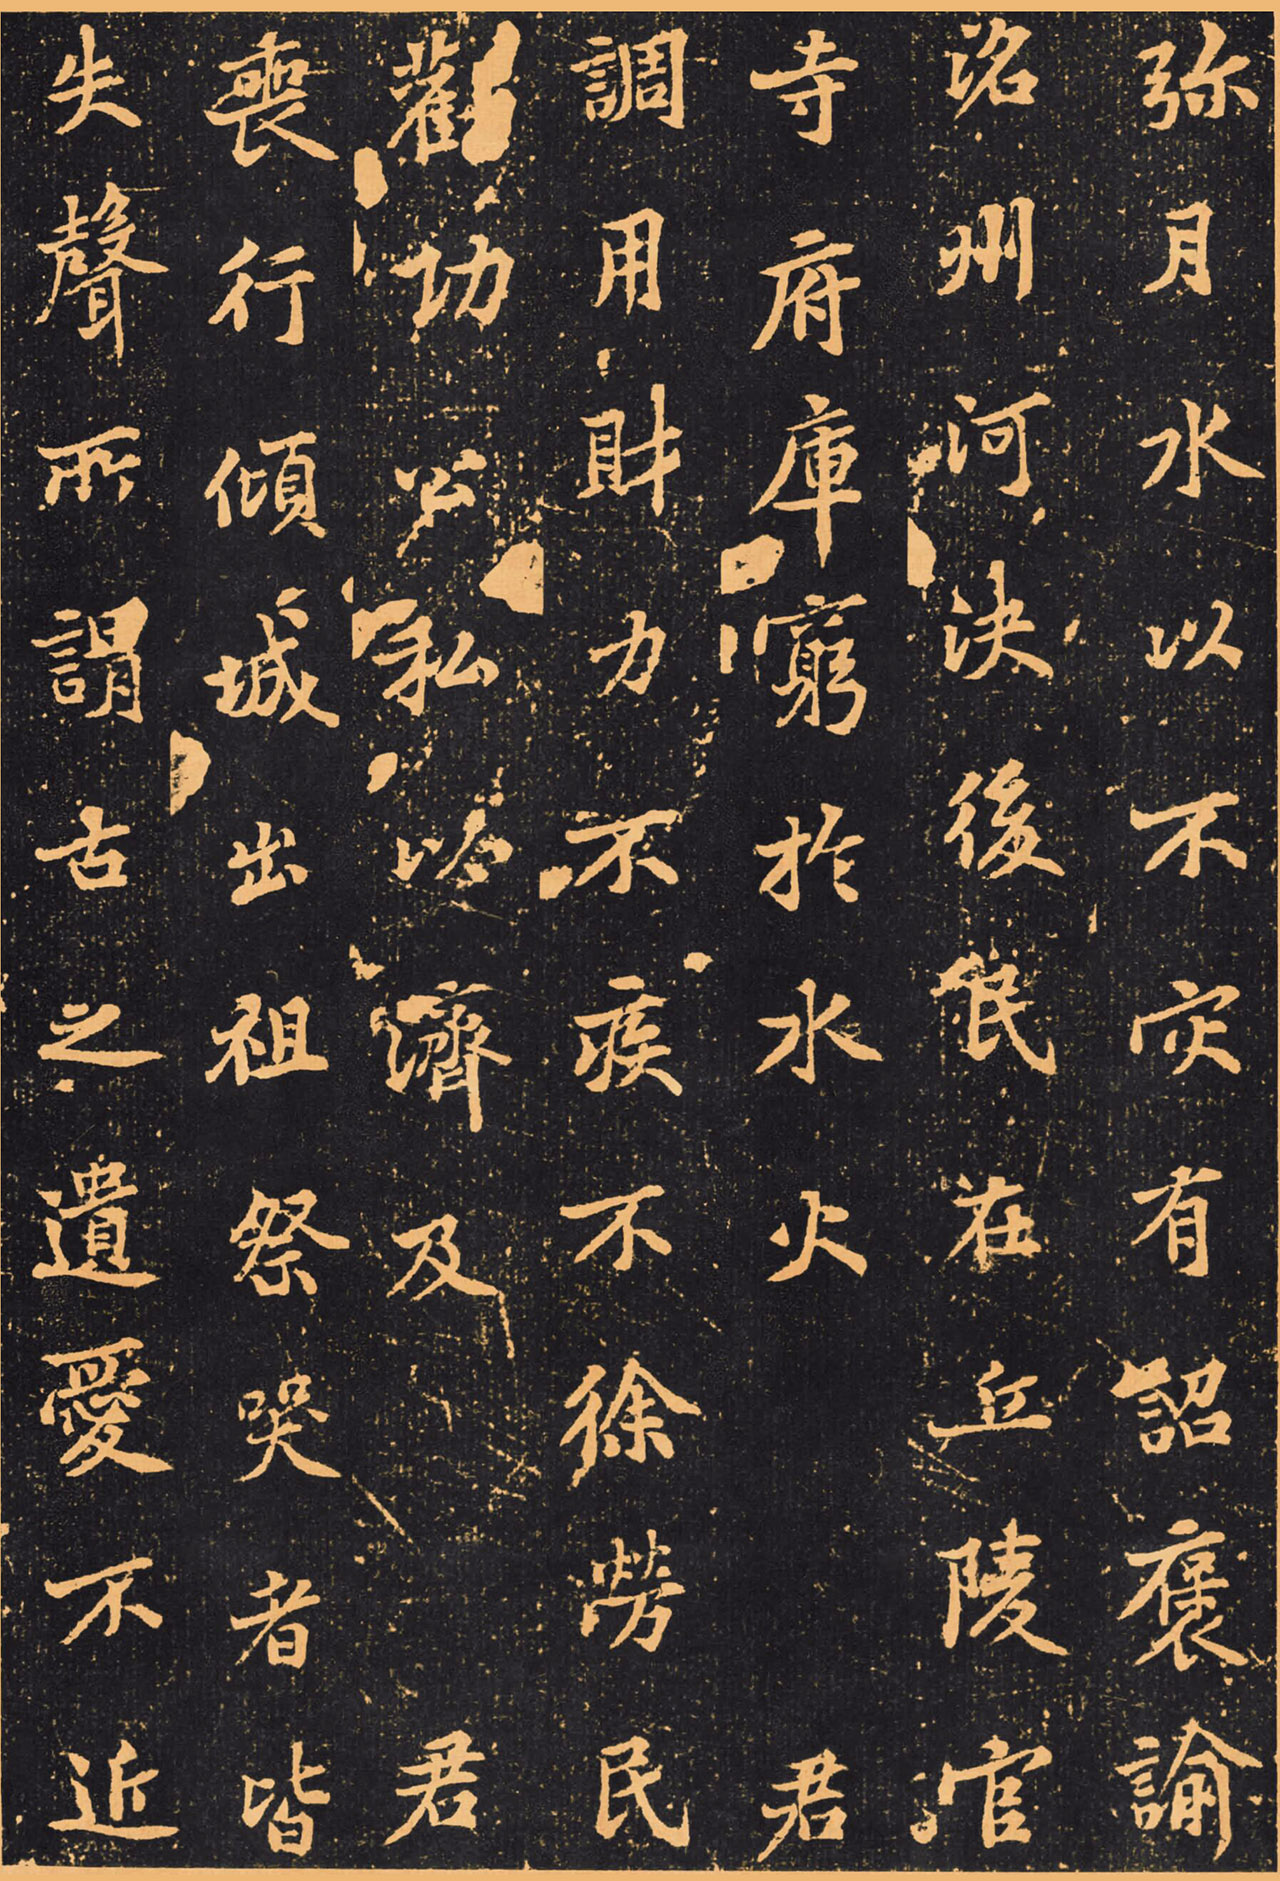 弥月水以不灾有詔褒諭
洺州河决後民在丘陵官
寺府庫窮於水火君
調用財力不疾不徐勞民
勸功公私以濟及君
喪行傾城出祖祭哭者皆
失聲所謂古之遺愛不近